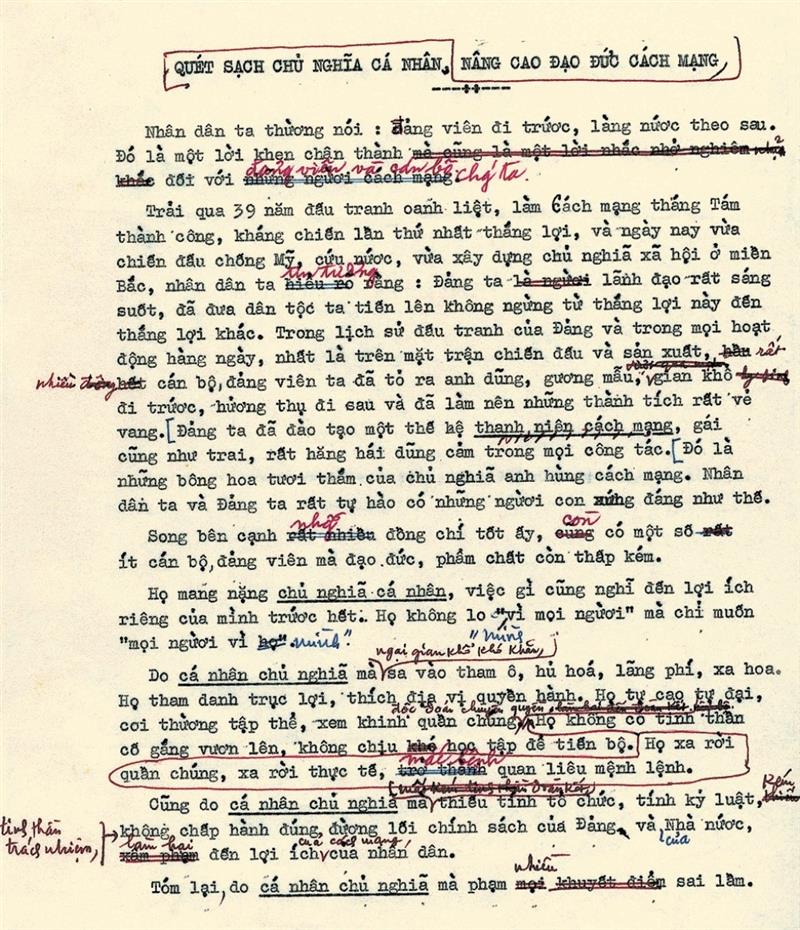 QUÉT SẠCH CHỦ NGHĨA CÁ NHÂN, NÂNG CAO ĐẠO ĐỨC CÁCH MẠNG,
Nhân dân ta thường nói : đảng viên đi trước, làng nước theo sau.
Đó là một lời khen chân thành mà cũng là một lời nhắc nhở nghiêm
đảng viên và cán bộ chúng ta.
khắc đối với những người cách mạng
Trải qua 39 năm đấu tranh oanh liệt, làm Cách mạng tháng Tám
thành công, kháng chiến lần thứ nhất thắng lợi, và ngày nay vừa
chiến đấu chống Mỹ, cứu nước, vừa xây dựng chủ nghiã xã hội ở miền
tin tưởng
Bắc, nhân dân ta hiểu rõ rằng : Đảng ta là người lãnh đạo rất sáng
suốt, đã đưa dân tộc ta tiến lên không ngừng từ thắng lợi này đến
thắng lợi khác. Trong lịch sử đấu tranh của Đảng và trong mọi hoạt
động hàng ngày, nhất là trên mặt trận chiến đấu và sản xuất, rất
nhiều hết cán bộ, đảng viên ta đã tỏ ra anh dũng, gương mẫu, gian khổ
đi trước, hưởng thụ đi sau và đã làm nên những thành tích rất vẻ
vang. [Đảng ta đã đào tạo một thế hệ thanh niên cách mạng, gái
cũng như trai, rất hăng hái dũng cảm trong mọi công tác. [Đó là
những bông hoa tươi thắm của chủ nghiã anh hùng cách mạng. Nhân
dân ta và Đảng ta rất tự hào có những người con xứng đáng như thế.
những còn
Song bên cạnh rất nhiều đồng chí tốt ấy, cũng có một số rất
ít cán bộ, đảng viên mà đạo đức, phẩm chất còn thấp kém.
Họ mang nặng chủ nghiã cá nhân, việc gì cũng nghĩ đến lợi ích
riêng của mình trước hết. Họ không lo "vì mọi người" mà chỉ muốn
"mọi người vì họ". mình." "mình
ngại gian khổ khó khăn,
Do cá nhân chủ nghiã mà sa vào tham ô, hủ hoá, lãng phí, xa hoa.
Họ tham danh trục lợi, thích địa vị quyền hành. Họ tự cao tự đại,
độc đoán chuyên quyền
coi thường tập thể, xem khinh quần chúng, Họ không có tinh thần
cố gắng vươn lên, không chịu khó học tập để tiến bộ. Họ xa rời
mắc bệnh
quần chúng, xa rời thực tế, trở thành quan liêu mệnh lệnh.
Cũng do cá nhân chủ nghiã mà thiếu tính tổ chức, tính kỷ luật, kém
tinh thần trách nhiệm, không chấp hành đúng đường lối chính sách của Đảng và Nhà nước,
làm hại của cách mạng, của
xâm phạm đến lợi ích của nhân dân.
nhiều
Tóm lại, do cá nhân chủ nghiã mà phạm mọi khuyết điểm sai lầm.